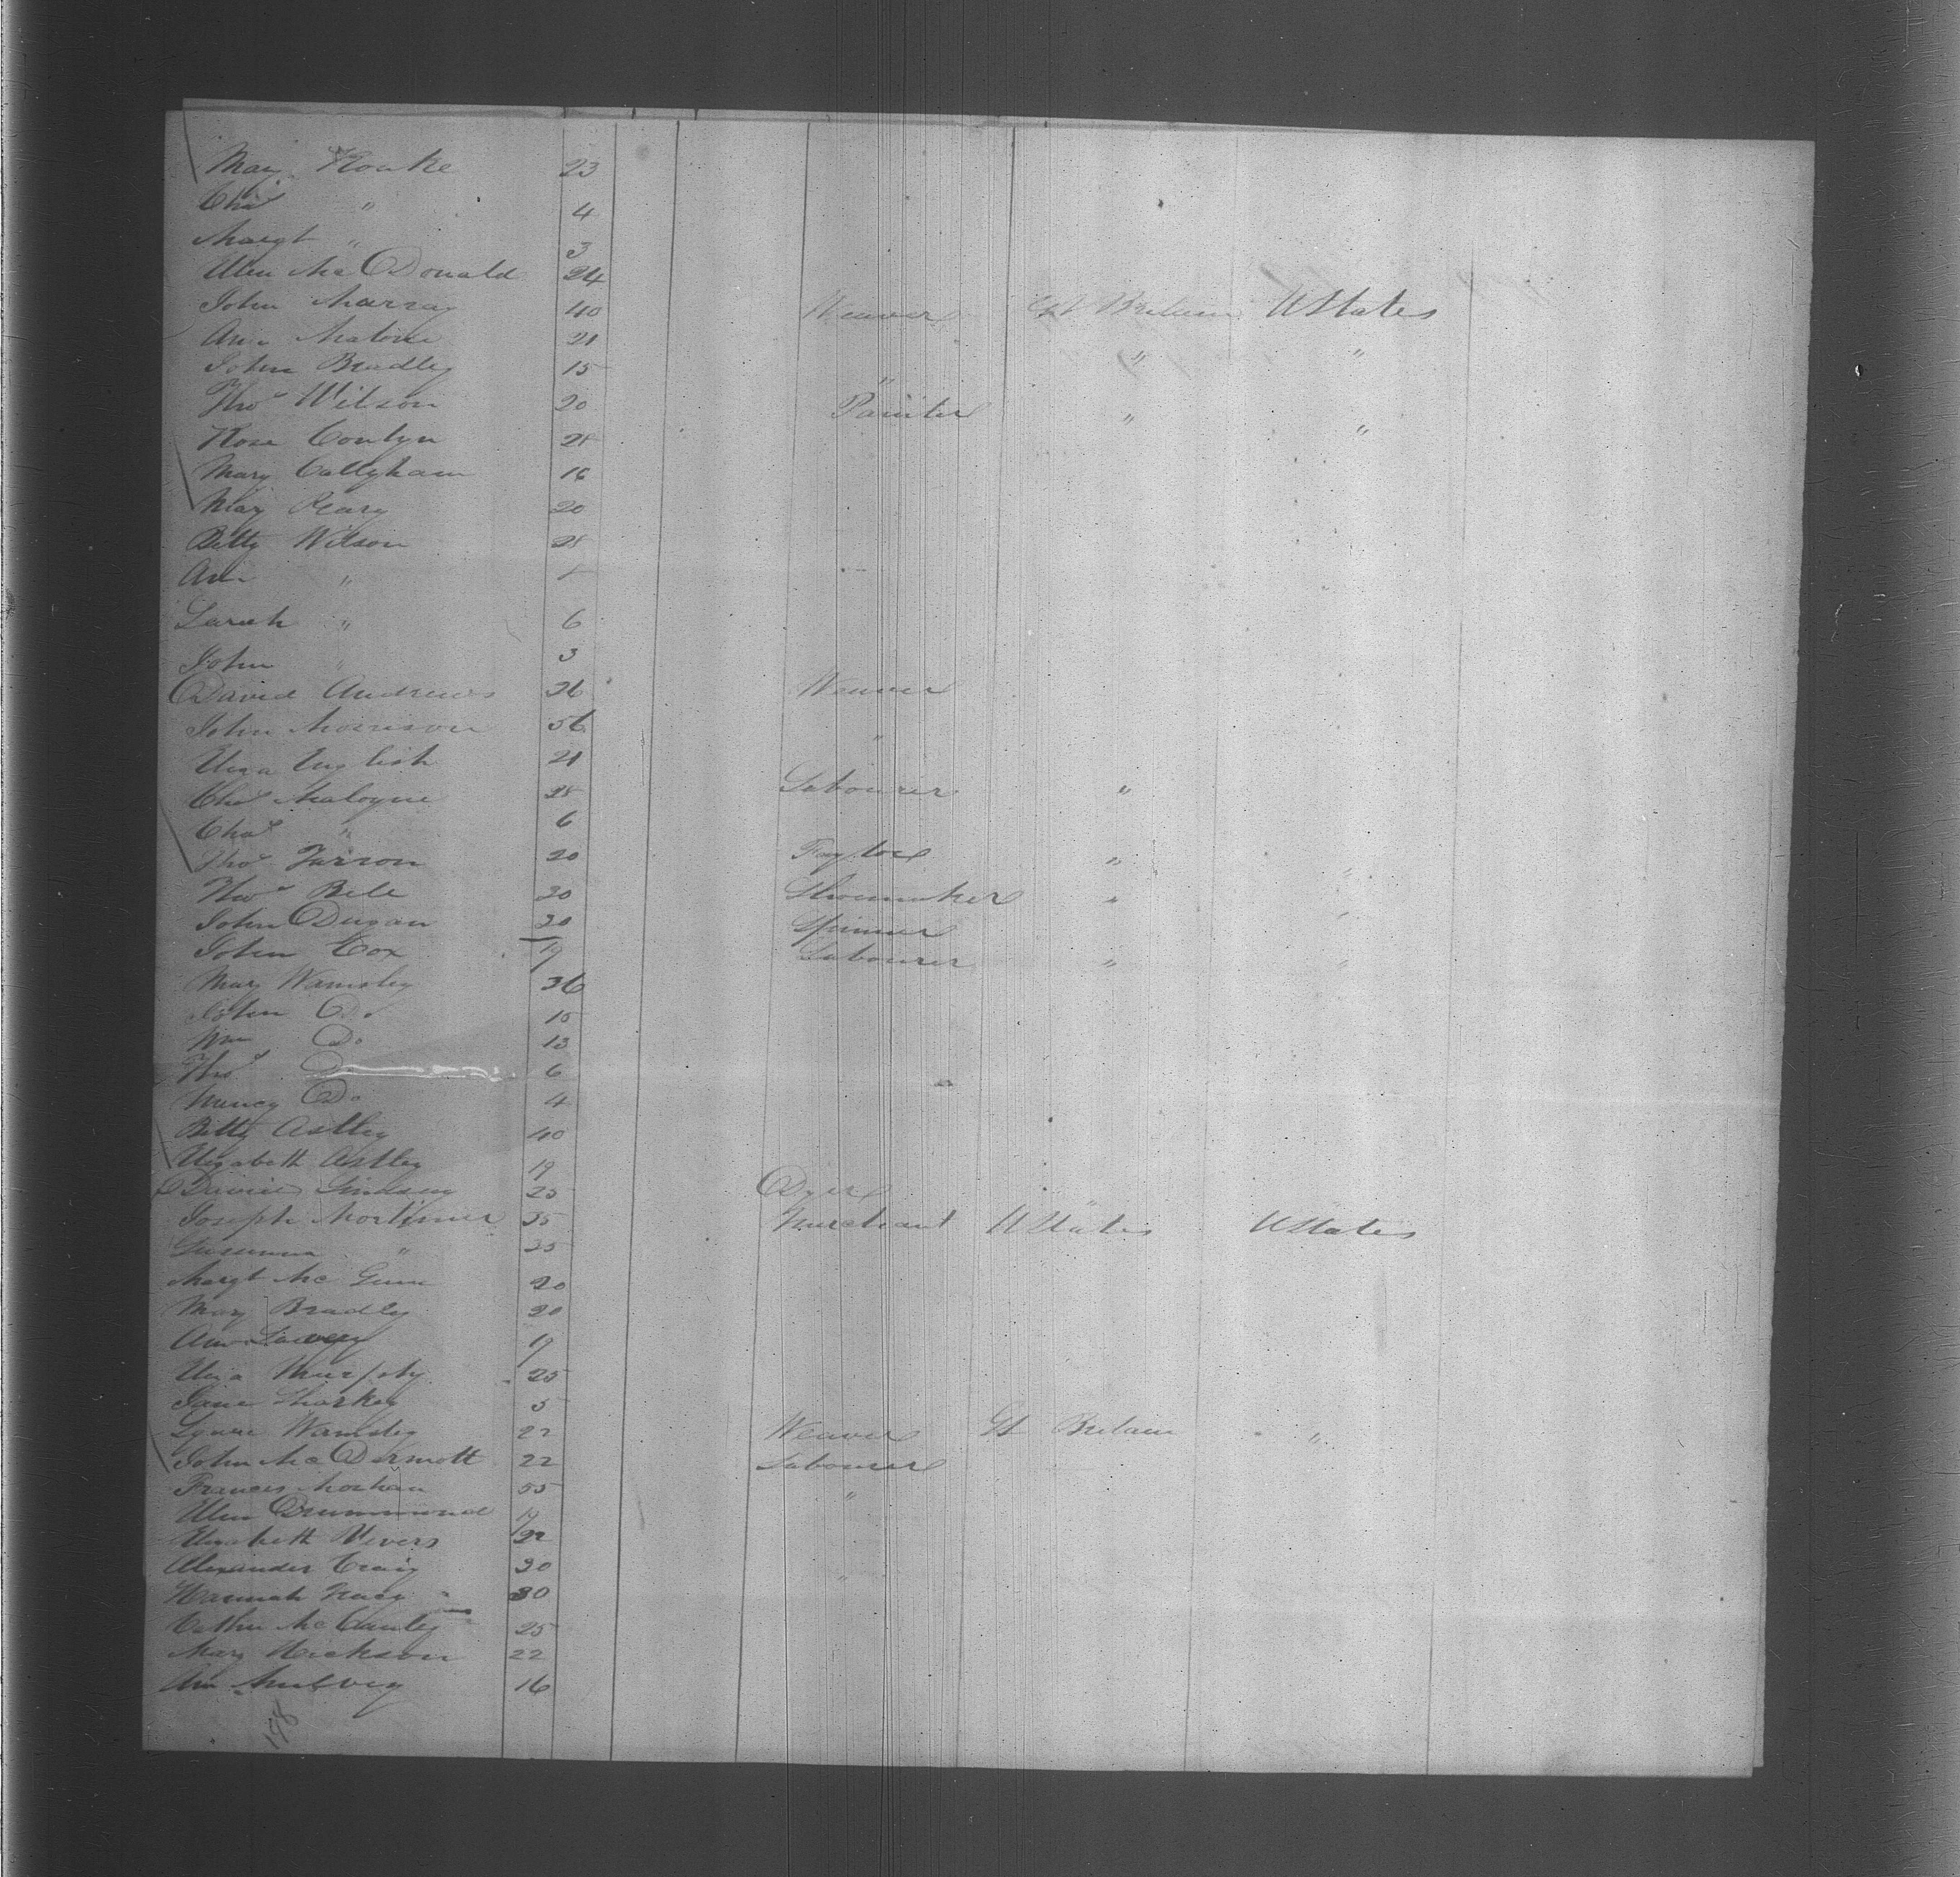 Mary Roake 23
Chas " 4
Margt " 3
Ellen Mc Donald 24
John Murray 40 Weaver Gt Britain U States
Ann Malone 21 " "
John Bradley 15 "
Thos Wilson 20 Painter " "
Rose Conlyn 28
Mary Callyham 16
Mary Reary 20
Betty Wilson 28
Ann "
Sarah " 6
John " 3
David Andrews 36 Weaver
John Morrison 56 "
Eliza English 21
Chas Maloyne 28 Labourer "
Chas " 6
Thos Farron 20 Taylor " "
Thos Bell 30 Shoemaker " "
John Dugan 20 Spinner
John Cox 19 Labourer " "
Mary Wamsley 36
John Do 15
Wm Do 13
Thos D 6
Nancy Do 4
Betty Astley 40
Elizabeth Astley 19
David Lindsay 25 Dyer "
Joseph Mortimer 35 Merchant U States U States
Susanna " 35
Margt Mc Gunn 20
Mary Bradley 20
Ann 19
Eliza Murphy 25
Jane Sharkey 5
Wamsley 22 Weaver Gt Britain "
John Mc Dermott 22 Labourer
Frances 55 "
Ellen Drummond 19
Elizabeth 22
Alexander Craig 30 "
Hannah 30
Cathn Mc Cauley 25
Mary Hickson 22
Ann Mulvey 16
198